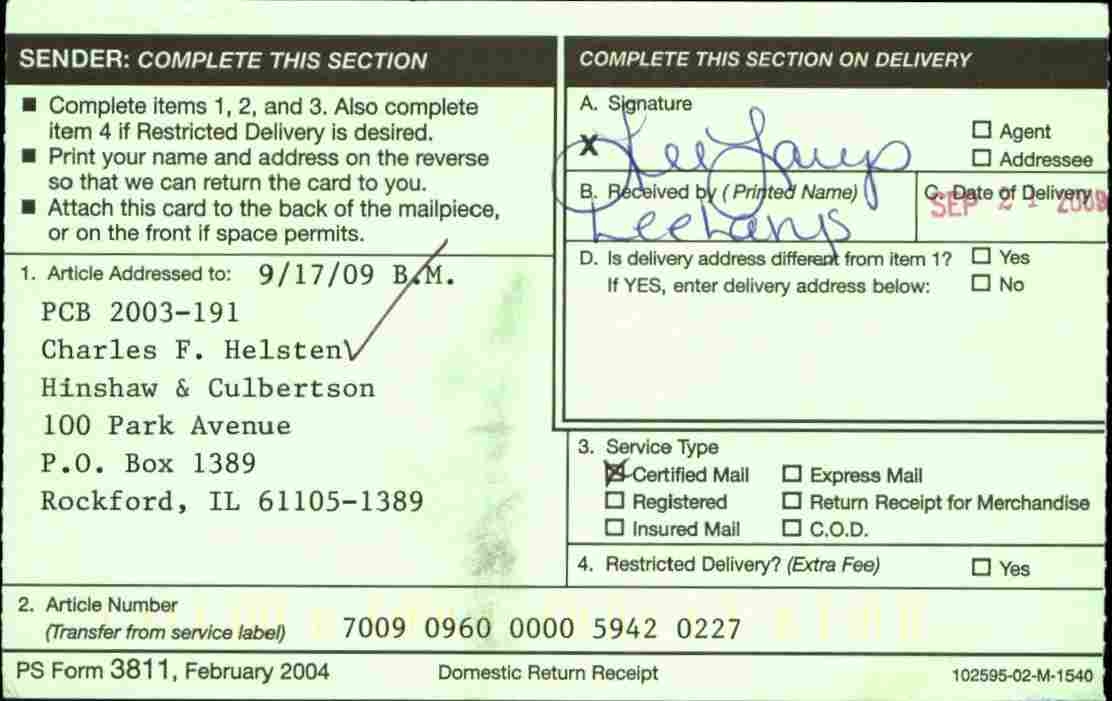 SENDER: COMPLETE THIS SECTION
■ Complete items 1, 2, and 3. Also complete
item 4 if Restricted Delivery is desired.
■ Print your name and address on the reverse
so that we can return the card to you.
■ Attach this card to the back of the mailpiece,
or on the front if space permits.
1. Article Addressed to: 9/17/09 B.M.
PCB 2003-191
Charles F. Helsten
Hinshaw & Culbertson
100 Park Avenue
P.O. Box 1389
Rockford, IL 61105-1389
2. Article Number
(Transfer from service label) 7009 0960 0000 5942 0227
COMPLETE THIS SECTION ON DELIVERY
A. Signature
X Lee
☐ Agent
☐ Addressee
B. Received by (Printed Name)
Lee
C. Date of Delivery
SEP 21 2009
D. Is delivery address different from item 1? ☐ Yes
If YES, enter delivery address below: ☐ No
3. Service Type
☒ Certified Mail ☐ Express Mail
☐ Registered ☐ Return Receipt for Merchandise
☐ Insured Mail ☐ C.O.D.
4. Restricted Delivery? (Extra Fee) ☐ Yes
PS Form 3811, February 2004 Domestic Return Receipt 102595-02-M-1540